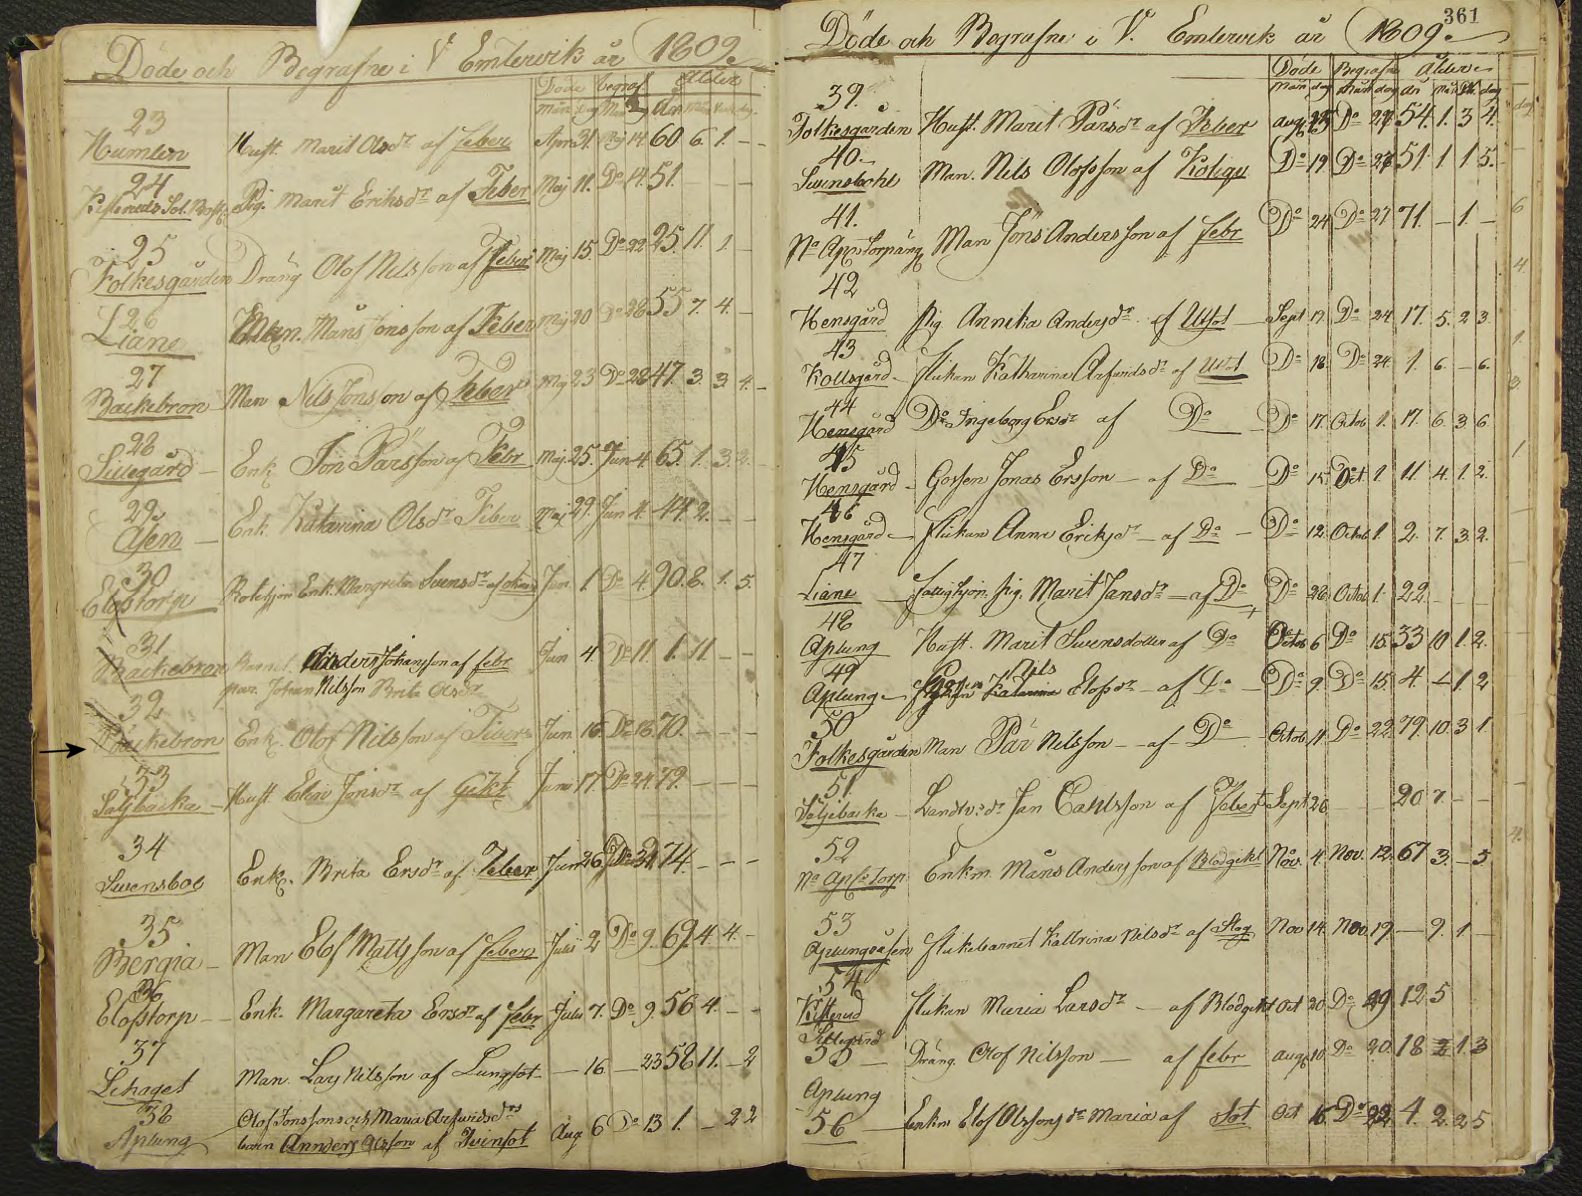 Döde och Begrafne i V. Emterwik år 1809.
Döde begraf Ålder
23
Humlen Hust. Marit Olsdr af feber Apr 31. Maj 14. 60 6. 1. - -
24
Pig. Marit Eriksdr af Feber Maj 11. Do 14. 51. - - -
25
Folkesgården Dräng Olof Nilsson af feber Maj 15. Do 22 25. 11. 1 -
26
Liane Man. Måns Jonsson af Feber Maj 20 Do 28 55 7. 4. -
27
Backebron Man Nils Jonson af Feber Maj 23 Do 28 47. 3. 3 4. -
28
Sillegård Enk. Jon Pärsson af Febr Maj 25. Jun 4 65. 1. 3. 2.
29
Åsen Enk. Katarina Olsdr Feber Maj 29. Jun 4. 44. 2. - -
30
Elofstorp Enk. Margreta Svensdr af Jun. 1. Do 4. 90. 8. 1. 5.
31
Backebron Barnet Anders Johansson af febr Jun 4 Do 11 1. 11 - -
par. Johan Nilsson Brita Olsdr
32
Backebron Enk. Olof Nilsson af Febers Jun 16 Do 18 70. - - -
33
Säljebacka Hust Elin Jonsdr af Gikt Juni 17. Do 24. 79. - - -
34
Svensbol Enk. Brita Ersdr af Feber Jun 26 74. - - -
35
Bergia Man Elof Mattsson af feber Julii 2 Do 9. 69. 4 4. -
36
Elofstorp Enk. Margareta Ersdr af febr Julii 7. Do 9. 56 4. - -
37
Lehaget Man. Lars Nilsson af Lungsot - 16 - 23 58 11. - 2
38 Olof Jonsson och Maria Arfwidsdrs
Aplung barn Anders Olsson af Tvinsot Aug 6 Do 13 1. - 2 2
361
Döde och Begrafne i V. Emterwik år 1809.
Döde Begrafne Ålder
Mån dag Mån dag år
39.
Folkesgården Hust. Marit Pärsdr af Feber Aug. Do 27 54. 1. 3 4.
40.
Svensbohl Man. Nils Olofsson af Do 19 Do 27 51. 1 1 5.
41.
Man Jöns Andersson af febr Do 24 Do 27 71. - 1. -
42
Hensgård Pig Annika Andersdr af Utsot Sept 17 Do 24 17. 5. 2 3
43
Kollsgård Flickan Katharina Arfwidsdr af Utst Do 18 Do 24. 1. 6 - 6.
44
Hensgård Do Ingeborg Ersdr af Do Do 17. Octob 1. 17. 6. 3 6
45
Hensgård Gossen Jonas Ersson af Do Do 15 Oct. 1 11 4. 1. 2.
46
Hensgård Flickan Anna Eriksdr af Do Do 12 Octob 1 2. 7. 3 2.
47
Liane pig. Marit Jansdr af Do Do 26 Octob 1. 22 - -
48
Aplung Hust. Marit Svensdotter af Do Octob 6 Do 15. 33 10 1. 2.
49 Nils
Aplung Elofsdr af Do Do 9. Do 15. 4. - 1. 2
50
Folkesgården Man Pär Nilsson af Do Octob 11 Do 22 79. 10. 3 1.
51
Säljebacka Jan Carlsson af Feber Sept 26 20 7. - -
52
Enkm Måns Andersson af Blodgikt Nov. 4. Nov. 12. 67 3. - 5
53
Aplungsåsen Flickebarnet Kattrina Nilsdr af Slag Nov 14. Nov. 19 - 9. 1 -
54
Flickan Maria Larsdr af Blodgikt Oct 20 Do 12 5
Sillegård
55 Dräng. Olof Nilsson af febr Aug. 10 Do 20. 18 2 1. 3
Aplung
56 Enkm Elof Olssons dr Maria af Sot Oct Do 22 4. 2. 2 5